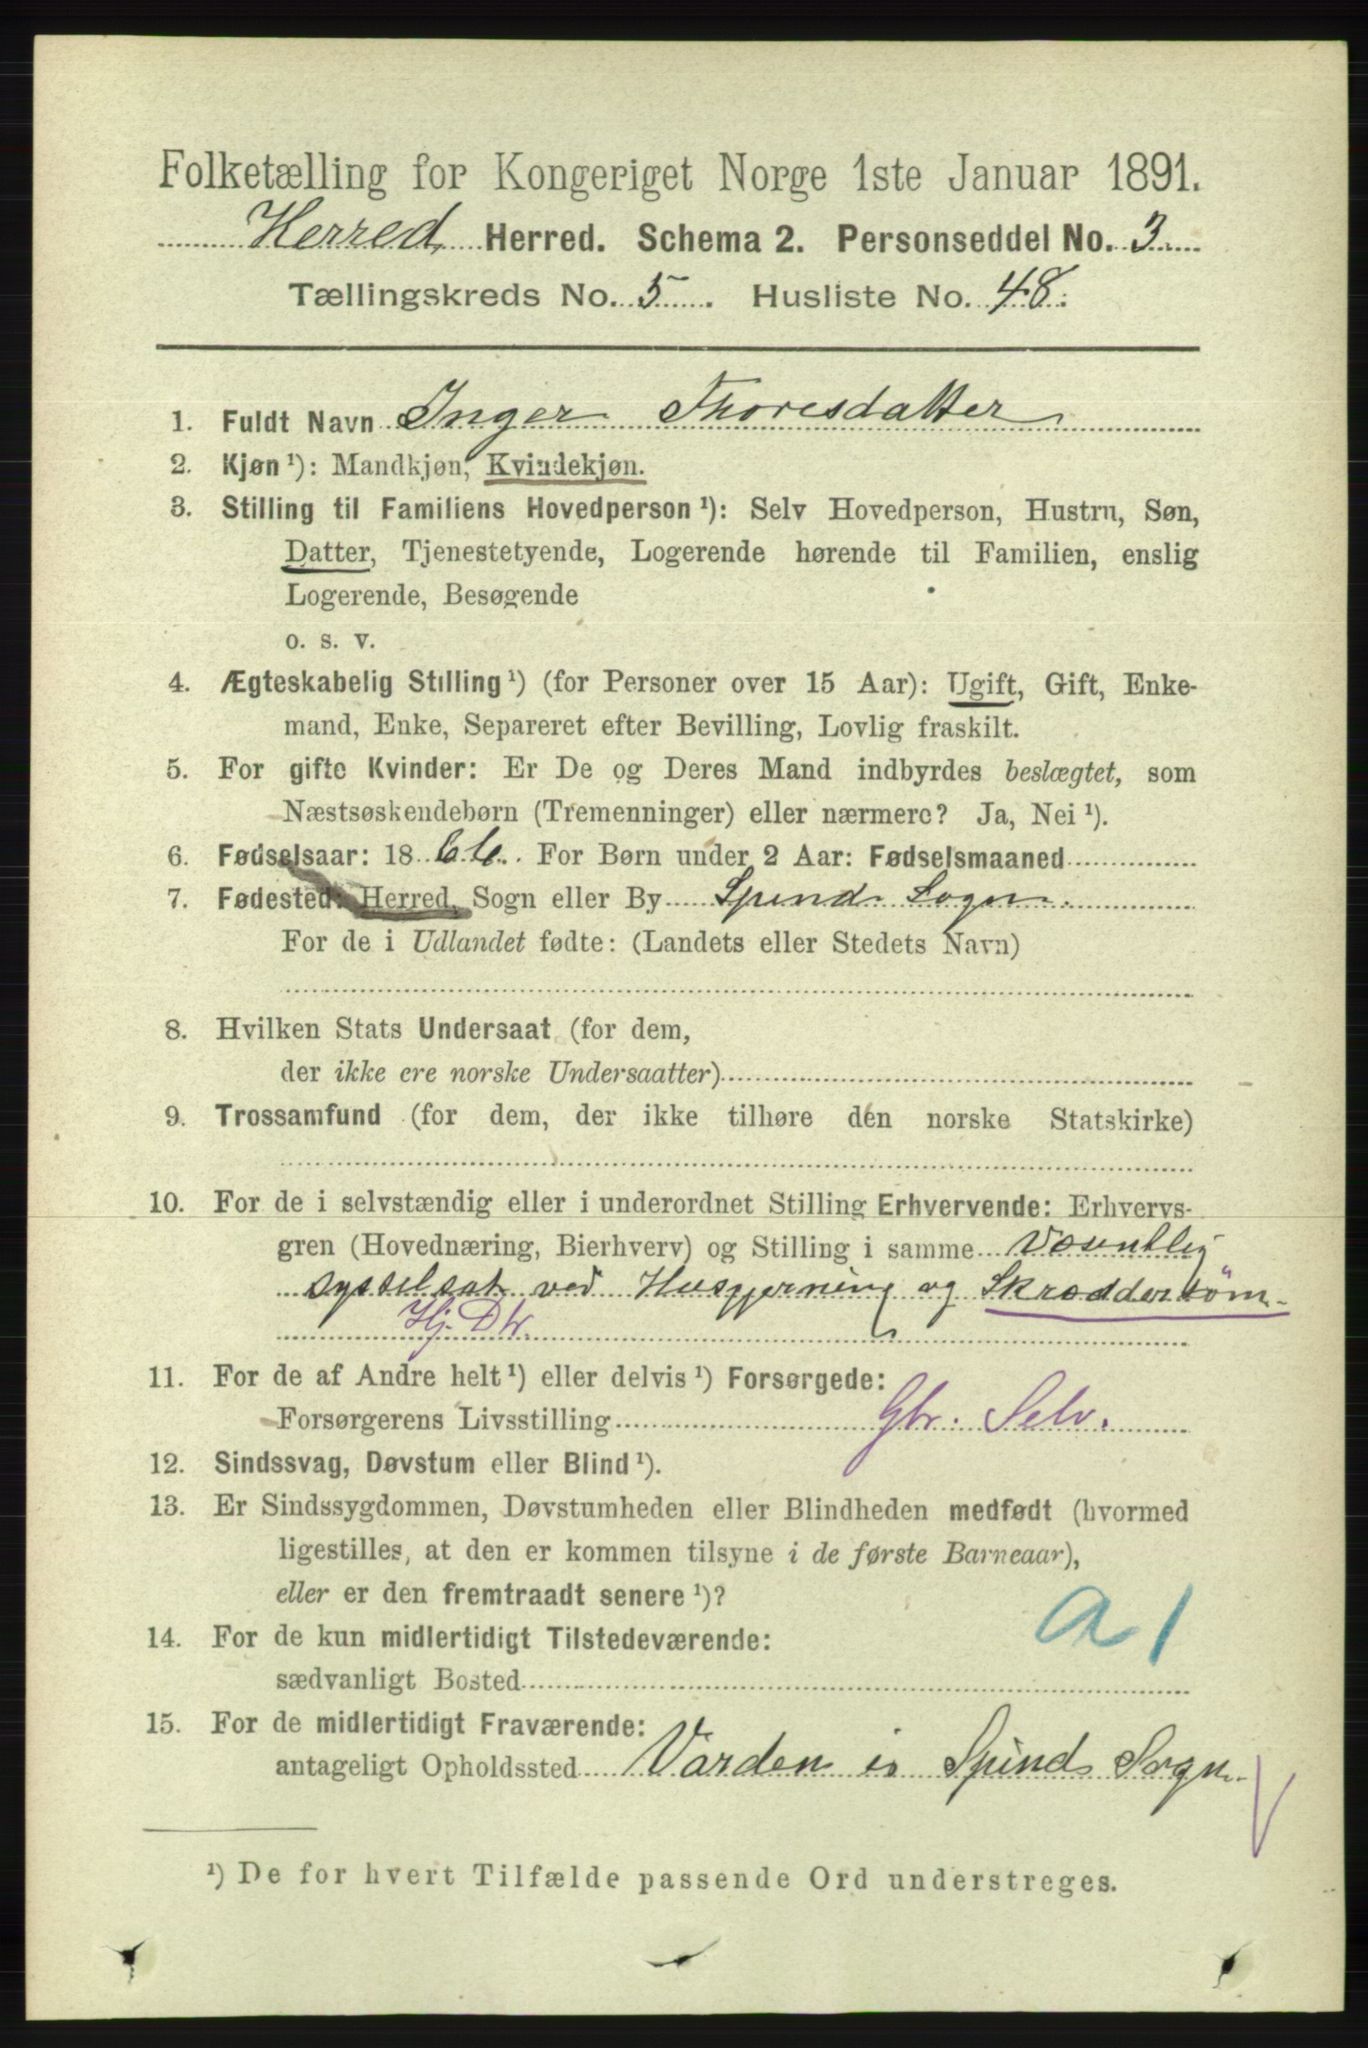 Folketælling for Kongeriget Norge 1ste Januar 1891.
Herred Herred. Schema 2. Personseddel No. 3
Tællingskreds No. 5. Husliste No. 48.
1. Fuldt Navn Inger Thoresdatter
2. Kjøn ¹): Mandkjøn, Kvindekjøn.
3. Stilling til Familiens Hovedperson ¹): Selv Hovedperson, Hustru, Søn,
Datter, Tjenestetyende, Logerende hørende til Familien, enslig
Logerende, Besøgende
o. s. v.
4. Ægteskabelig Stilling ¹) (for Personer over 15 Aar): Ugift, Gift, Enke-
mand, Enke, Separeret efter Bevilling, Lovlig fraskilt.
5. For gifte Kvinder: Er De og Deres Mand indbyrdes beslægtet, som
Næstsøskendebørn (Tremenninger) eller nærmere? Ja, Nei ¹).
6. Fødselsaar: 1866. For Børn under 2 Aar: Fødselsmaaned
7. Fødested: Herred, Sogn eller By Spinds Sogn.
For de i Udlandet fødte: (Landets eller Stedets Navn)
8. Hvilken Stats Undersaat (for dem,
der ikke ere norske Undersaatter)
9. Trossamfund (for dem, der ikke tilhøre den norske Statskirke)
10. For de i selvstændig eller i underordnet Stilling Erhvervende: Erhvervs-
gren (Hovednæring, Bierhverv) og Stilling i samme Væsentlig
sysselsat ved Husgjerning og Skræddersøm.
Hj. Dtr.
11. For de af Andre helt ¹) eller delvis ¹) Forsørgede:
Forsørgerens Livsstilling Gbr. Selv.
12. Sindssvag, Døvstum eller Blind ¹).
13. Er Sindssygdommen, Døvstumheden eller Blindheden medfødt (hvormed
ligestilles, at den er kommen tilsyne i de første Barneaar),
eller er den fremtraadt senere ¹)?
a 1
14. For de kun midlertidigt Tilstedeværende:
sædvanligt Bosted
15. For de midlertidigt Fraværende:
antageligt Opholdssted Varden i Spinds Sogn.
¹) De for hvert Tilfælde passende Ord understreges.